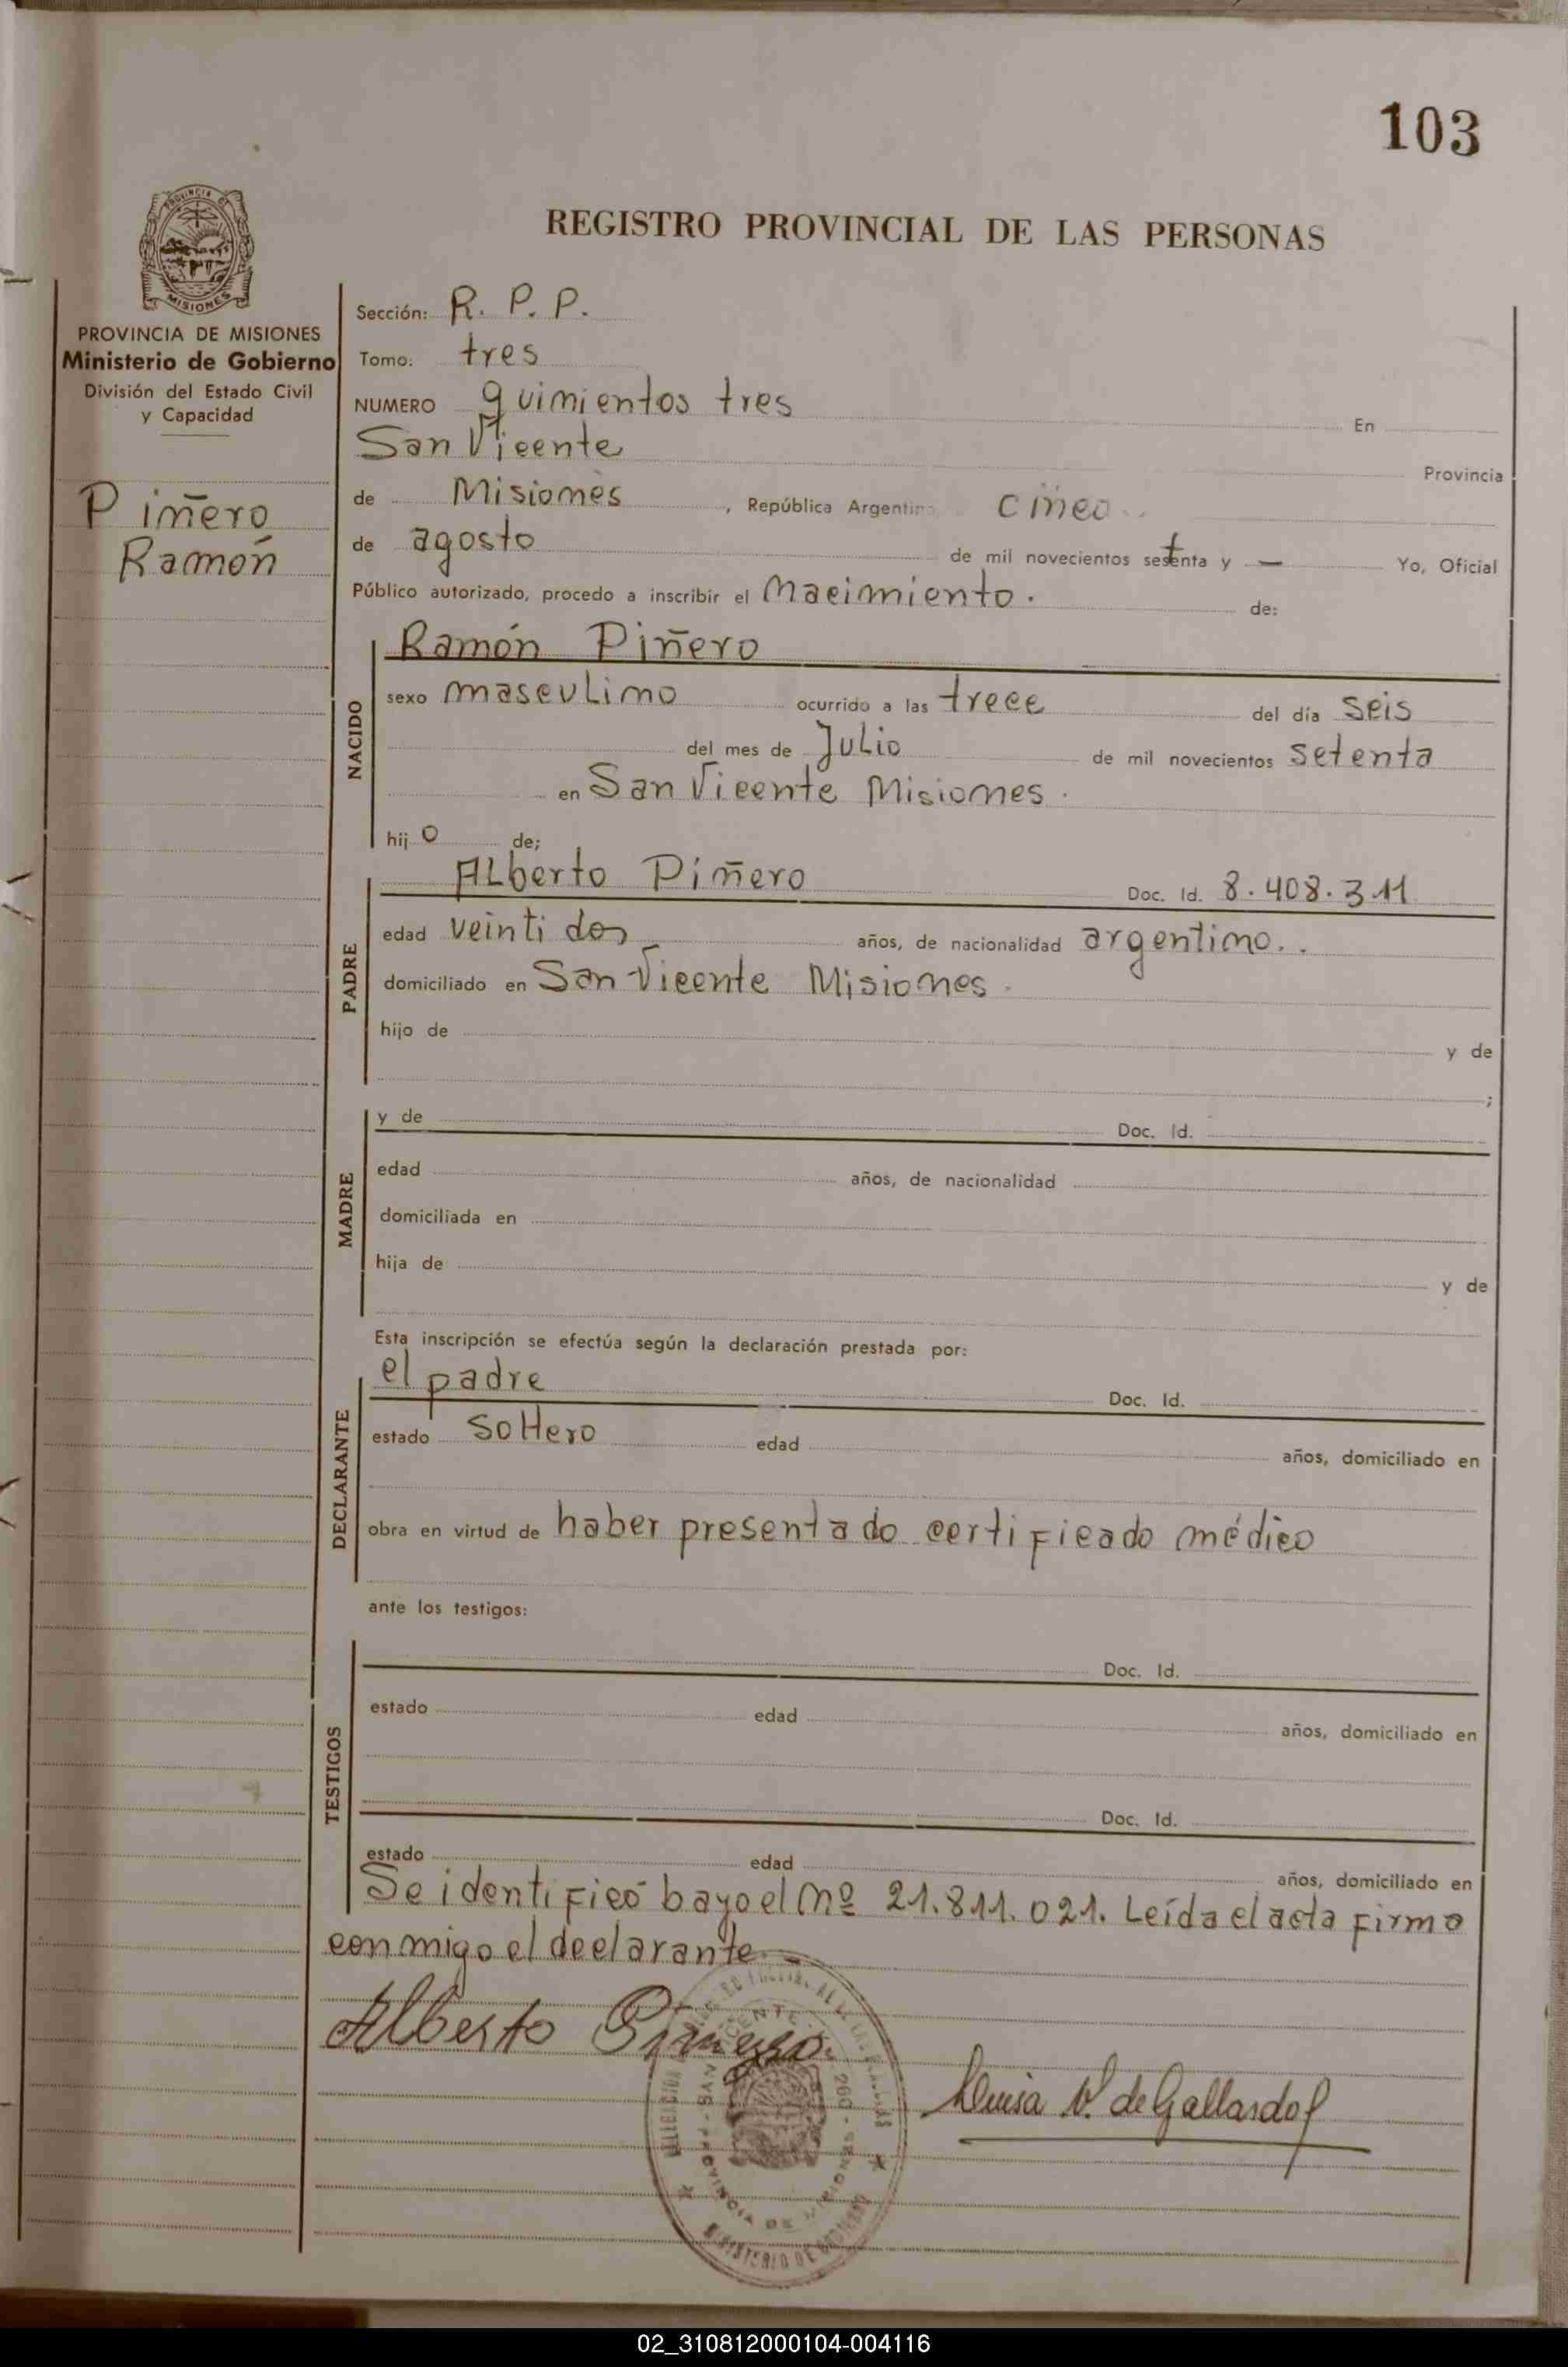 103
REGISTRO PROVINCIAL DE LAS PERSONAS
PROVINCIA DE MISIONES
Ministerio de Gobierno
División del Estado Civil
y Capacidad
Piñero
Ramón
Sección: R. P. P.
Tomo: tres
NUMERO quinientos tres En
San Vicente Provincia
de Misiones, República Argentina cinco
de agosto de mil novecientos setenta y — Yo, Oficial
Público autorizado, procedo a inscribir el Nacimiento. de:
NACIDO
Ramón Piñero
sexo masculino ocurrido a las trece del día seis
del mes de Julio de mil novecientos setenta
en San Vicente Misiones.
hijo de;
PADRE
Alberto Piñero Doc. Id. 8.408.311
edad veintidos años, de nacionalidad argentino..
domiciliado en San Vicente Misiones.
hijo de y de
;
MADRE
y de Doc. Id.
edad años, de nacionalidad
domiciliada en
hija de y de
Esta inscripción se efectúa según la declaración prestada por:
DECLARANTE
el padre Doc. Id.
estado soltero edad años, domiciliado en
obra en virtud de haber presentado certificado médico
ante los testigos:
TESTIGOS
Doc. Id.
estado edad años, domiciliado en
Doc. Id.
estado edad años, domiciliado en
Se identificó bayo el Nº 21.811.021. Leída el acta firma
conmigo el declarante. -
Alberto Piñero
Luisa V. de Gallardo
PROVINCIA DE MISIONES
MINISTERIO DE GOBIERNO
02_310812000104-004116